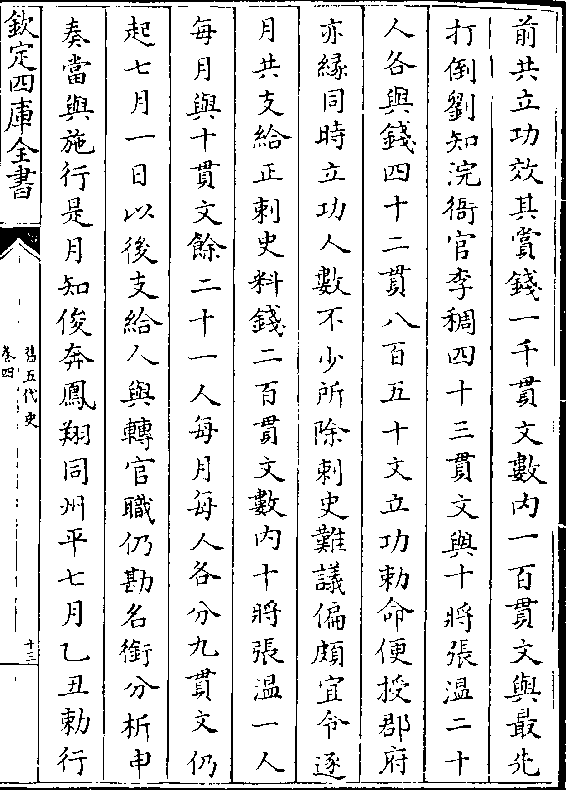 前共立功效其賞錢一千貫文數内一百貫文與最先
打倒劉知浣衙官李稠四十三貫文與十將張温二十
人各與錢四十二貫八百五十文立功勅命便授郡府
亦緣同時立功人數不少所除刺史難議偏頗宜令逐
月共支給正刺史料錢二百貫文數内十將張温一人
每月與十貫文餘二十一人每月每人各分九貫文仍
起七月一日以後支給人與轉官職仍勘名銜分析申
奏當與施行是月知俊奔鳳翔同州平七月乙丑勅行
欽定四庫全書
舊五代史
卷四
十三